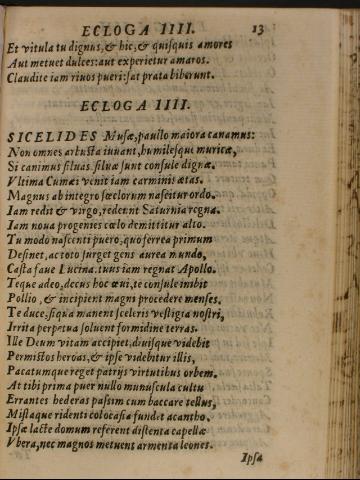 ECLOGA IIII. 13
Et vitula tu dignus, & hic, & quisquis amores
Aut metuet dulces: aut experietur amaros.
Claudite iam riuos pueri: sat prata biberunt.
ECLOGA IIII.
SICELIDES Musæ, paullo maiora canamus:
Non omnes arbusta iuuant, humilesque muricæ,
Si canimus siluas, siluæ sunt consule dignæ.
Vltima Cumæi venit iam carminis ætas.
Magnus ab integro sæclorum nascitur ordo.
Iam redit & virgo, redeunt Saturnia regna.
Iam noua progenies cœlo demittitur alto.
Tu modo nascenti puero, quo ferrea primum
Desinet, ac toto surget gens aurea mundo,
Casta faue Lucina. tuus iam regnat Apollo.
Teque adeo, decus hoc æui, te consule inibit
Pollio, & incipient magni procedere menses.
Te duce, siqua manent sceleris vestigia nostri,
Irrita perpetua soluent formidine terras.
Ille Deum vitam accipiet, diuisque videbit
Permistos heroas, & ipse videbitur illis,
Pacatumque reget patrijs virtutibus orbem.
At tibi prima puer nullo munuscula cultu
Errantes hederas passim cum baccare tellus,
Mistaque ridenti colocasia fundet acantho.
Ipsæ lacte domum referent distenta capellæ
Vbera, nec magnos metuent armenta leones.
Ipsa